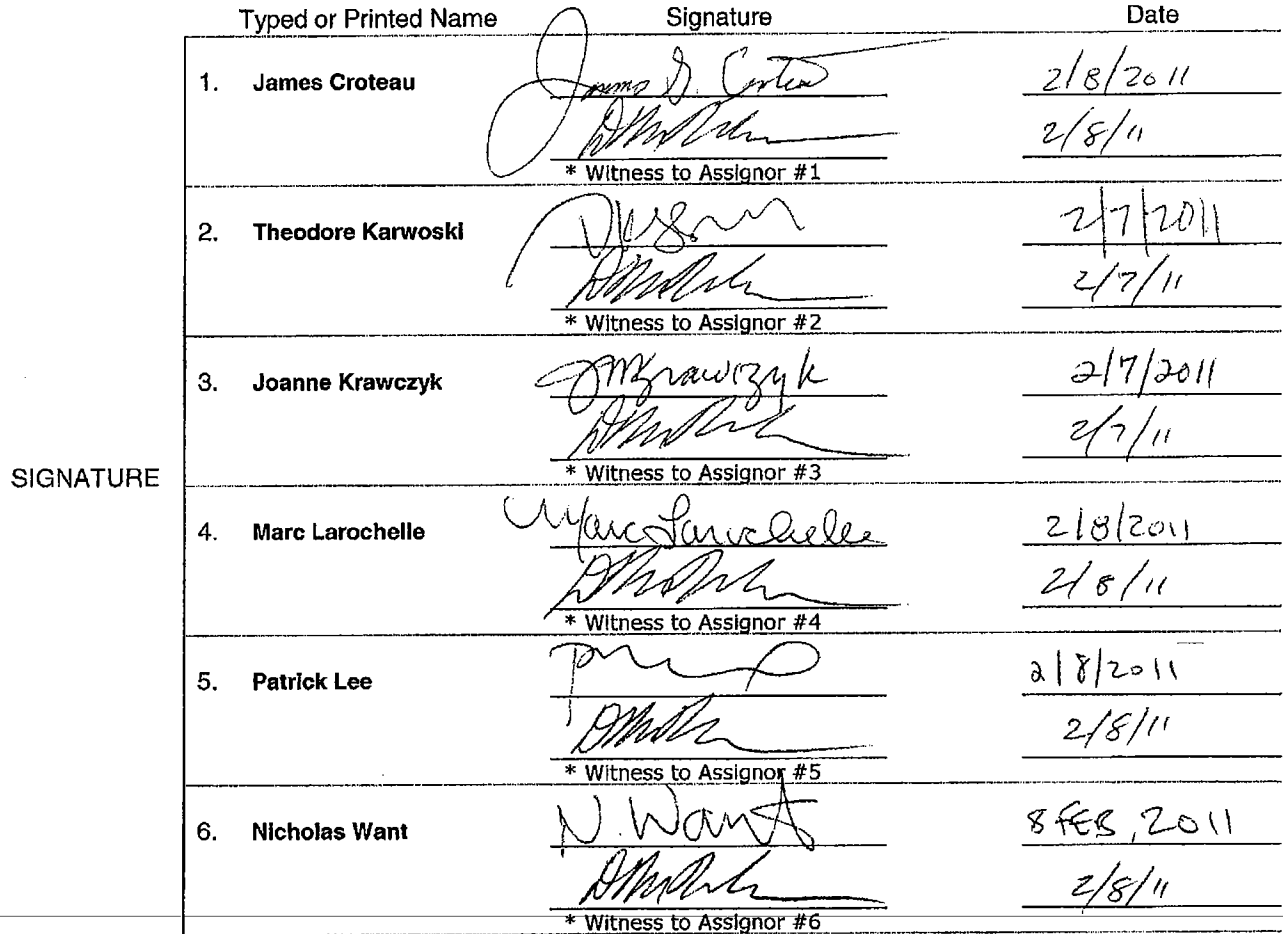 Typed or Printed Name Signature Date
1. James Croteau James G. Croteau 2/8/2011
2/8/11
* Witness to Assignor #1
2. Theodore Karwoski 2/7/2011
2/7/11
* Witness to Assignor #2
3. Joanne Krawczyk JMKrawczyk 2/7/2011
2/7/11
* Witness to Assignor #3
SIGNATURE
4. Marc Larochelle Marc Larochelle 2/8/2011
2/8/11
* Witness to Assignor #4
5. Patrick Lee 2/8/2011
2/8/11
* Witness to Assignor #5
6. Nicholas Want N. Want 8 FEB, 2011
2/8/11
* Witness to Assignor #6